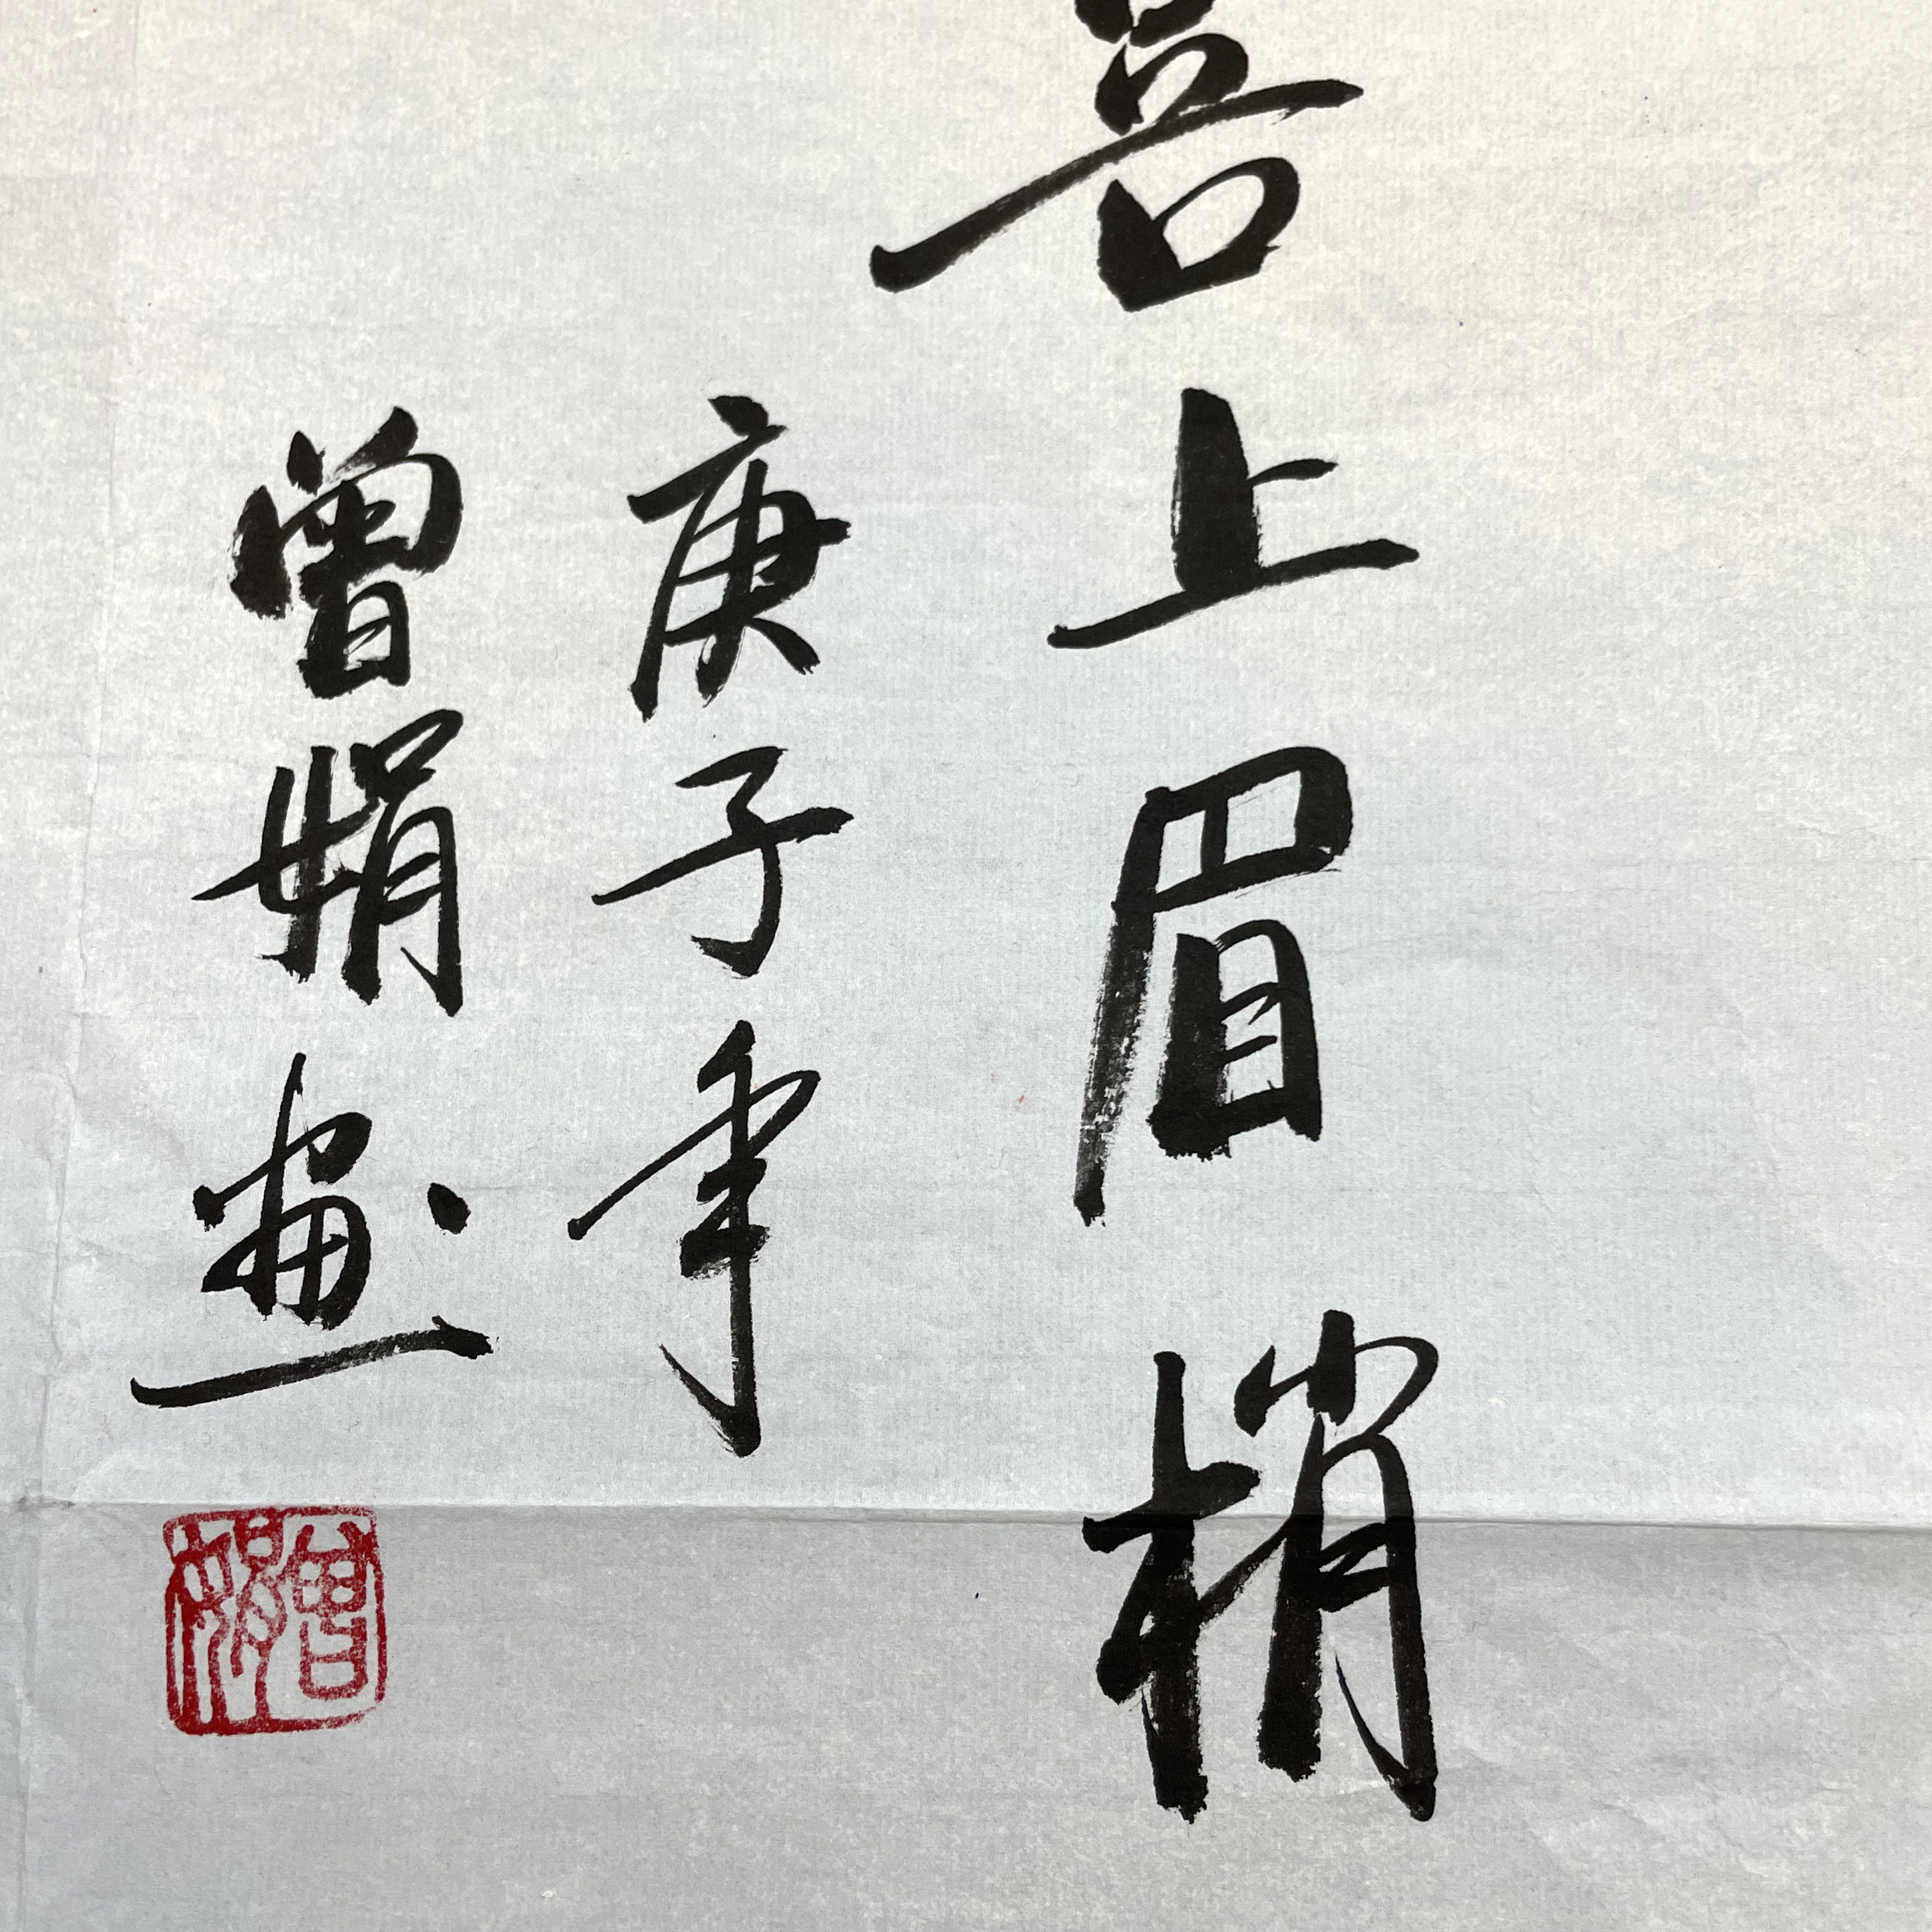 喜上眉梢
庚子年
曾娟画
曾娟